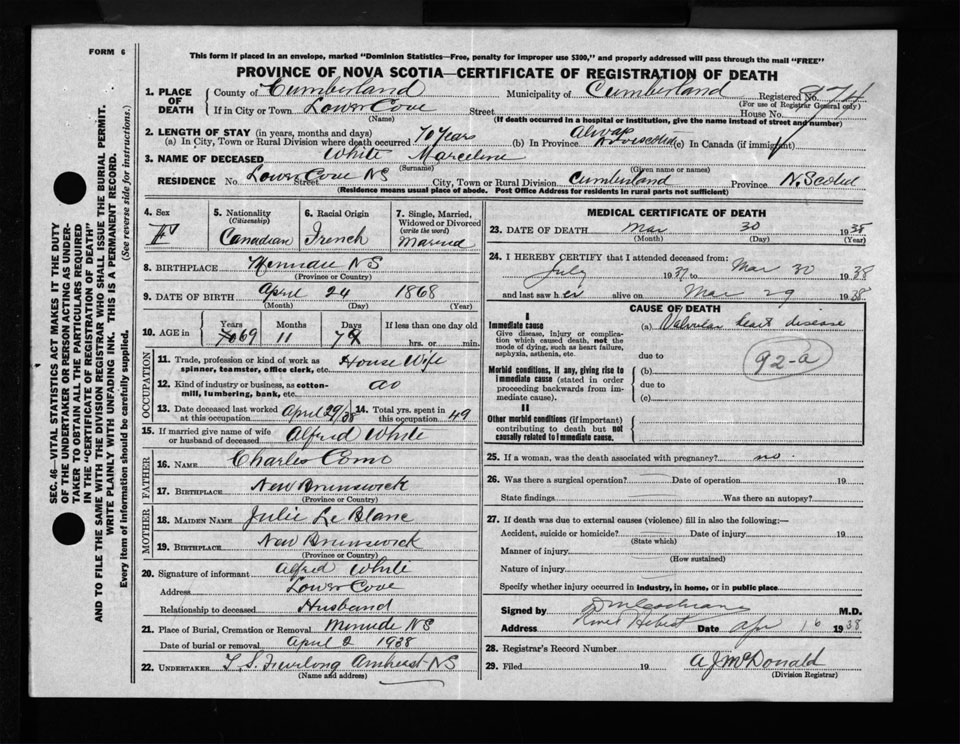 FORM 6
This form if placed in an envelope, marked "Dominion Statistics—Free, penalty for improper use $300," and properly addressed will pass through the mail "FREE"
PROVINCE OF NOVA SCOTIA—CERTIFICATE OF REGISTRATION OF DEATH
1. PLACE OF DEATH
County of Cumberland Municipality of Cumberland Registered No. 874
(For use of Registrar General only)
If in City or Town Lower Cove Street House No.
(Name) (If death occurred in a hospital or institution, give the name instead of street and number)
2. LENGTH OF STAY (in years, months and days)
(a) In City, Town or Rural Division where death occurred 70 Years (b) In Province Always (c) In Canada (if immigrant)
3. NAME OF DECEASED White Marceline
(Surname) (Given name or names)
RESIDENCE No. Lower Cove NS Street City, Town or Rural Division Cumberland Province N. Scotia
(Residence means usual place of abode. Post Office Address for residents in rural parts not sufficient)
4. Sex F
5. Nationality (Citizenship) Canadian
6. Racial Origin French
7. Single, Married, Widowed or Divorced (write the word) Married
8. BIRTHPLACE NS
(Province or Country)
9. DATE OF BIRTH April 24 1868
(Month) (Day) (Year)
10. AGE in Years 70 69 Months 11 Days If less than one day old hrs. or min.
OCCUPATION
11. Trade, profession or kind of work as spinner, teamster, office clerk, etc. House Wife
12. Kind of industry or business, as cotton-mill, lumbering, bank, etc. do
13. Date deceased last worked at this occupation April 29/38
14. Total yrs. spent in this occupation 49
15. If married give name of wife or husband of deceased Alfred White
FATHER
16. NAME Charles
17. BIRTHPLACE New Brunswick
(Province or Country)
MOTHER
18. MAIDEN NAME Julie Le Blanc
19. BIRTHPLACE New Brunswick
(Province or Country)
20. Signature of informant Alfred White
Address Lower Cove
Relationship to deceased Husband
21. Place of Burial, Cremation or Removal Minudie NS
Date of burial or removal April 2 1938
22. UNDERTAKER Furlong Amherst NS
(Name and address)
MEDICAL CERTIFICATE OF DEATH
23. DATE OF DEATH Mar 30 1938
(Month) (Day) (Year)
24. I HEREBY CERTIFY that I attended deceased from:
July 1937 to Mar 30 1938
and last saw her alive on Mar 29 1938
CAUSE OF DEATH
I
Immediate cause
Give disease, injury or complication which caused death, not the mode of dying, such as heart failure, asphyxia, asthenia, etc.
(a) Valvular heart disease
due to
92-a
Morbid conditions, if any, giving rise to immediate cause (stated in order proceeding backwards from immediate cause).
(b)
due to
(c)
II
Other morbid conditions (if important) contributing to death but not causally related to immediate cause.
25. If a woman, was the death associated with pregnancy? no.
26. Was there a surgical operation? Date of operation 19
State findings Was there an autopsy?
27. If death was due to external causes (violence) fill in also the following:—
Accident, suicide or homicide? Date of injury 19
(State which)
Manner of injury
(How sustained)
Nature of injury
Specify whether injury occurred in industry, in home, or in public place
Signed by D M Cochrane M.D.
Address River Hebert Date Apr 16 1938
28. Registrar's Record Number
29. Filed 19 A J McDonald
(Division Registrar)
SEC. 46—VITAL STATISTICS ACT MAKES IT THE DUTY
OF THE UNDERTAKER OR PERSON ACTING AS UNDER-
TAKER TO OBTAIN ALL THE PARTICULARS REQUIRED
IN THE "CERTIFICATE OF REGISTRATION OF DEATH"
AND TO FILE THE SAME WITH THE DIVISION REGISTRAR WHO SHALL ISSUE THE BURIAL PERMIT.
WRITE PLAINLY WITH UNFADING INK. THIS IS A PERMANENT RECORD.
Every item of information should be carefully supplied. (See reverse side for instructions.)